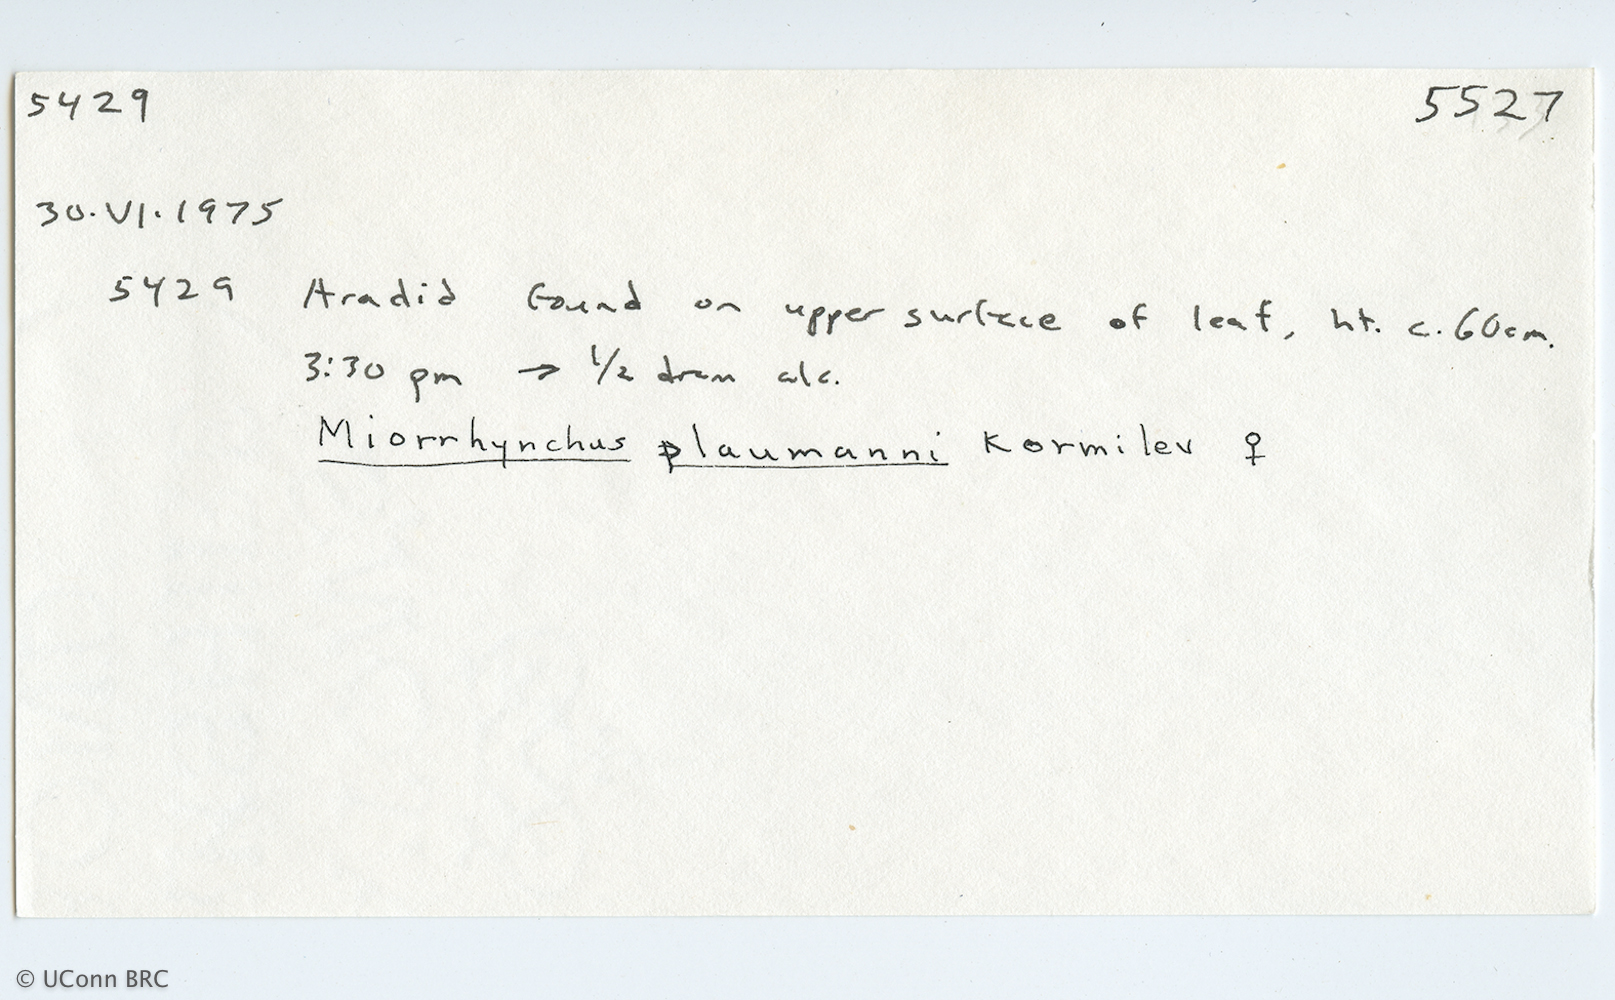 5429 5527
30.VI.1975
5429 Aradid found on upper surface of leaf, ht. c. 60cm.
3:30 pm → 1/2 dram alc.
Miorrhynchus plaumanni Kormilev ♀
© UConn BRC